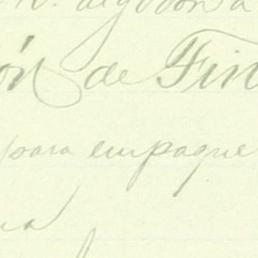 algodon a
ón de Fin
para empaque
na